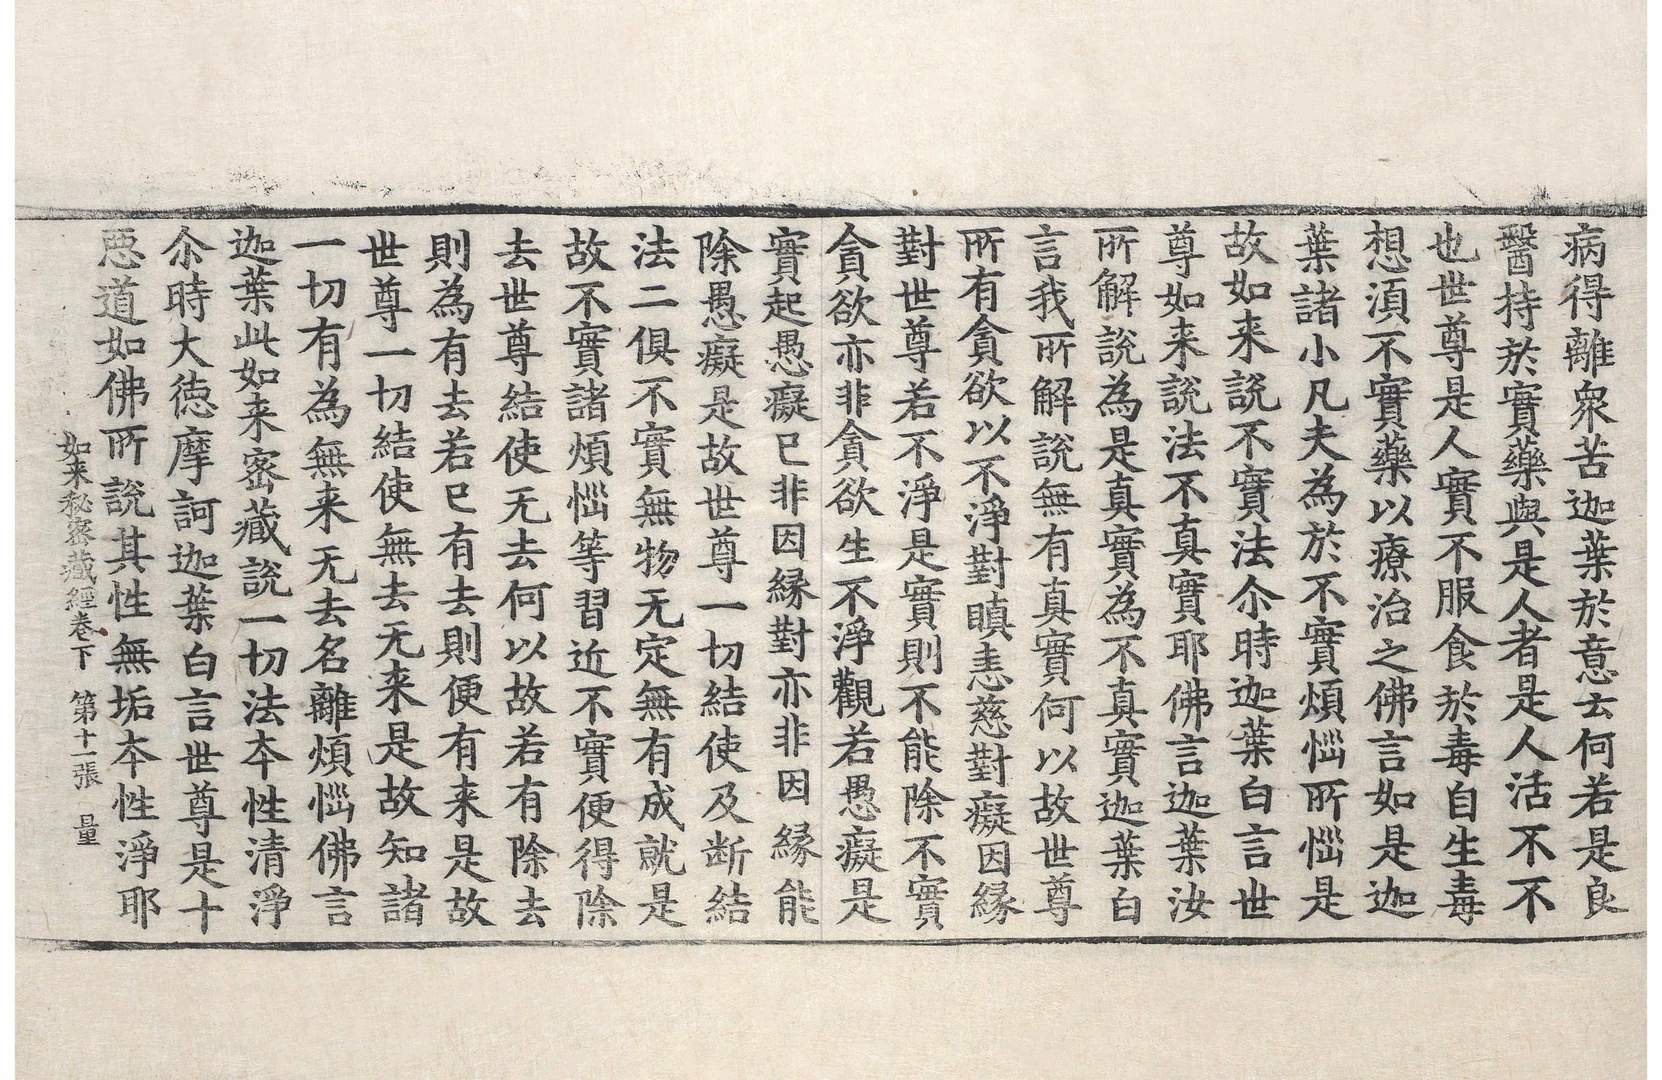 病得離衆苦迦葉於意云何若是良
醫持於實藥與是人者是人活不不
也世尊是人實不服食於毒自生毒
想湏不實藥以療治之佛言如是迦
葉諸小凡夫為於不實煩惱所惱是
故如来說不實法尒時迦葉白言世
尊如来說法不真實耶佛言迦葉汝
所解說為是真實為不真實迦葉白
言我所解說無有真實何以故世尊
所有貪欲以不淨對瞋恚慈對癡因緣
對世尊若不淨是實則不能除不實
貪欲亦非貪欲生不淨觀若愚癡是
實起愚癡已非因緣對亦非因緣能
除愚癡是故世尊一切結使及断結
法二俱不實無物无定無有成就是
故不實諸煩惱等習近不實便得除
去世尊結使无去何以故若有除去
則為有去若已有去則便有来是故
世尊一切結使無去无来是故知諸
一切有為無来无去名離煩惱佛言
迦葉此如来密藏說一切法本性清淨
尒時大德摩訶迦葉白言世尊是十
惡道如佛所說其性無垢本性淨耶
如来秘密藏經卷下 第十一張 量